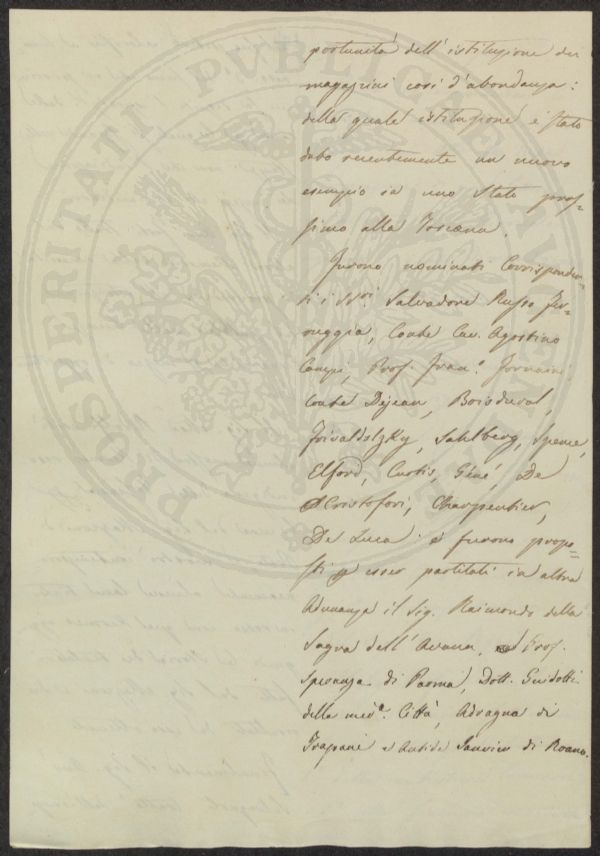 portunità dell'istituzione dei
magazzini così d'abondanza:
della quale istituzione è stato
dato recentemente un nuovo
esempio in uno Stato pros-
simo alla Toscana.
Furono nominati Corrisponden-
ti i SS.ri Salvadore Russo Fer-
ruggia, Conte Cav. Agostino
Prof. Fran.o
Conte Dejean, Boisduval,
Frivaldszky, Sahlberg, Spence,
Elford, Curtis, Gené, De
Cristofori, Charpentier,
De Luca: e furono propo-
sti p esser partitati in altra
Adunanza il Sig. Raimondo della
Sagra dell'Avana, Prof.
Speranza di Parma, Dott. Guidotti
della med.a Città, Adragna di
Trapani e Janvier di Roano.
PROSPERITATI PUBLICAE AUGENDAE